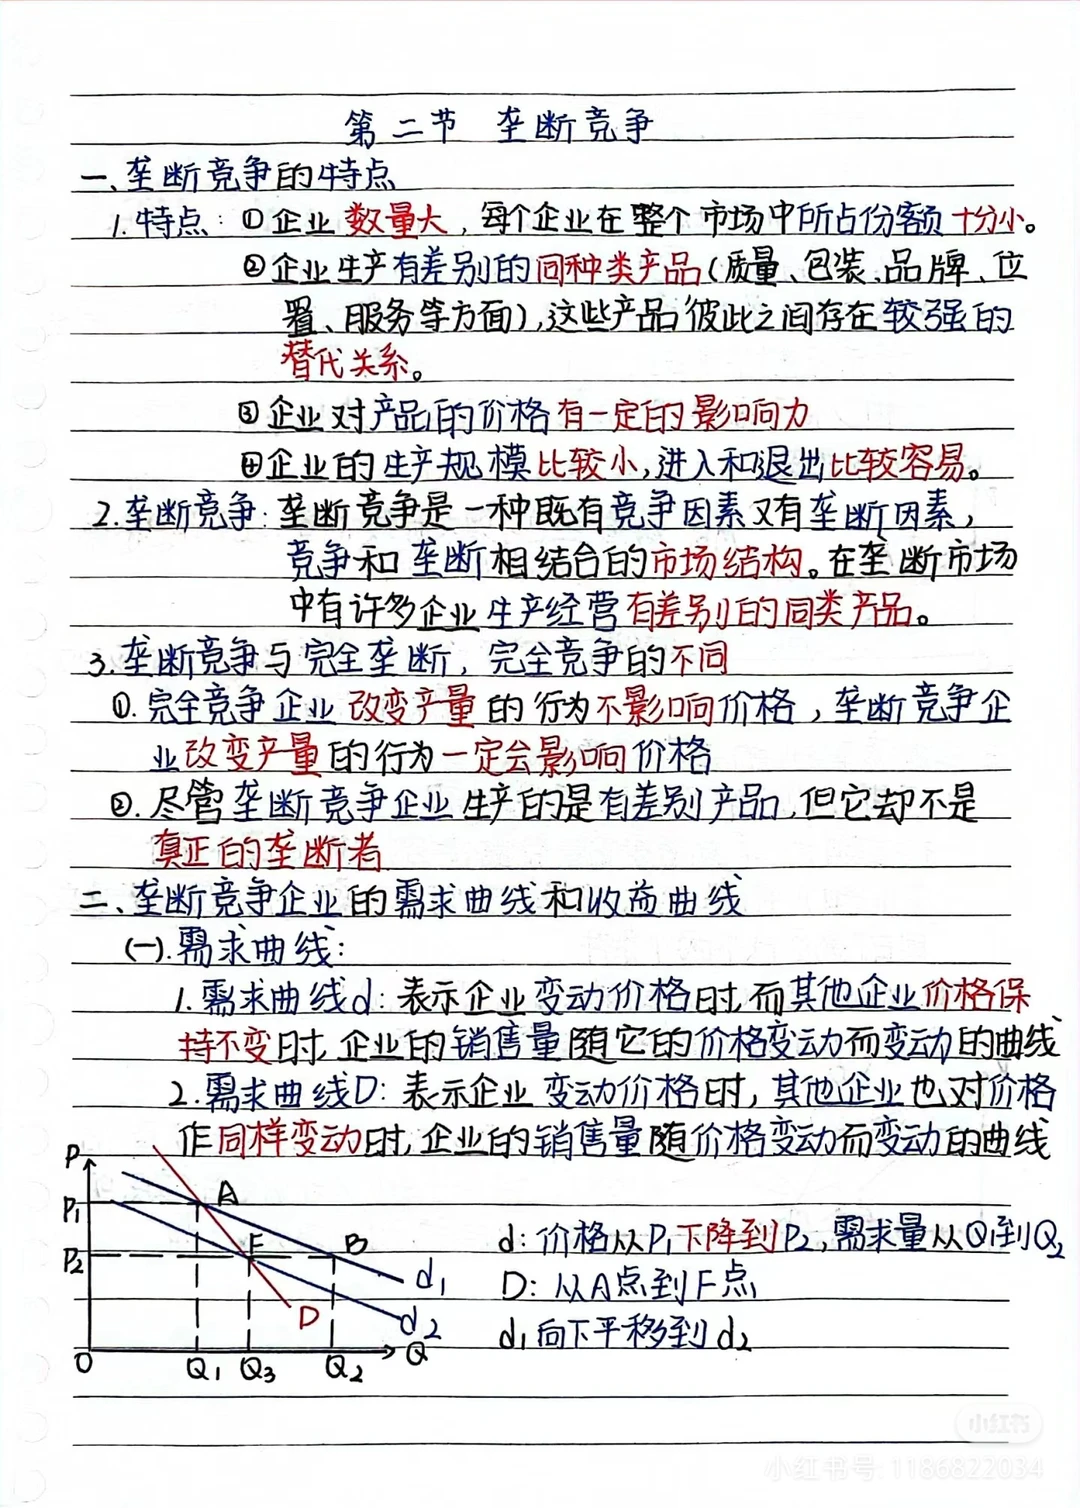 第二节 垄断竞争
一、垄断竞争的特点
1.特点：①企业数量大，每个企业在整个市场中所占份额十分小。
②企业生产有差别的同种类产品(质量、包装、品牌、位
置、服务等方面)，这些产品彼此之间存在较强的
替代关系。
③企业对产品的价格有一定的影响力
④企业的生产规模比较小，进入和退出比较容易。
2.垄断竞争：垄断竞争是一种既有竞争因素又有垄断因素，
竞争和垄断相结合的市场结构。在垄断市场
中有许多企业生产经营有差别的同类产品。
3.垄断竞争与完全垄断，完全竞争的不同
①.完全竞争企业改变产量的行为不影响价格，垄断竞争企
业改变产量的行为一定会影响价格
②.尽管垄断竞争企业生产的是有差别产品，但它却不是
真正的垄断者
二、垄断竞争企业的需求曲线和收益曲线
(一).需求曲线：
1.需求曲线d：表示企业变动价格时，而其他企业价格保
持不变时，企业的销售量随它的价格变动而变动的曲线
2.需求曲线D：表示企业变动价格时，其他企业也对价格
作同样变动时，企业的销售量随价格变动而变动的曲线
P
P1 A
d：价格从P1下降到P2，需求量从Q1到Q2
P2 F B
D：从A点到F点
d1
D d2
d1向下平移到d2
O Q1 Q3 Q2 Q
小红书
小红书号：1186822034